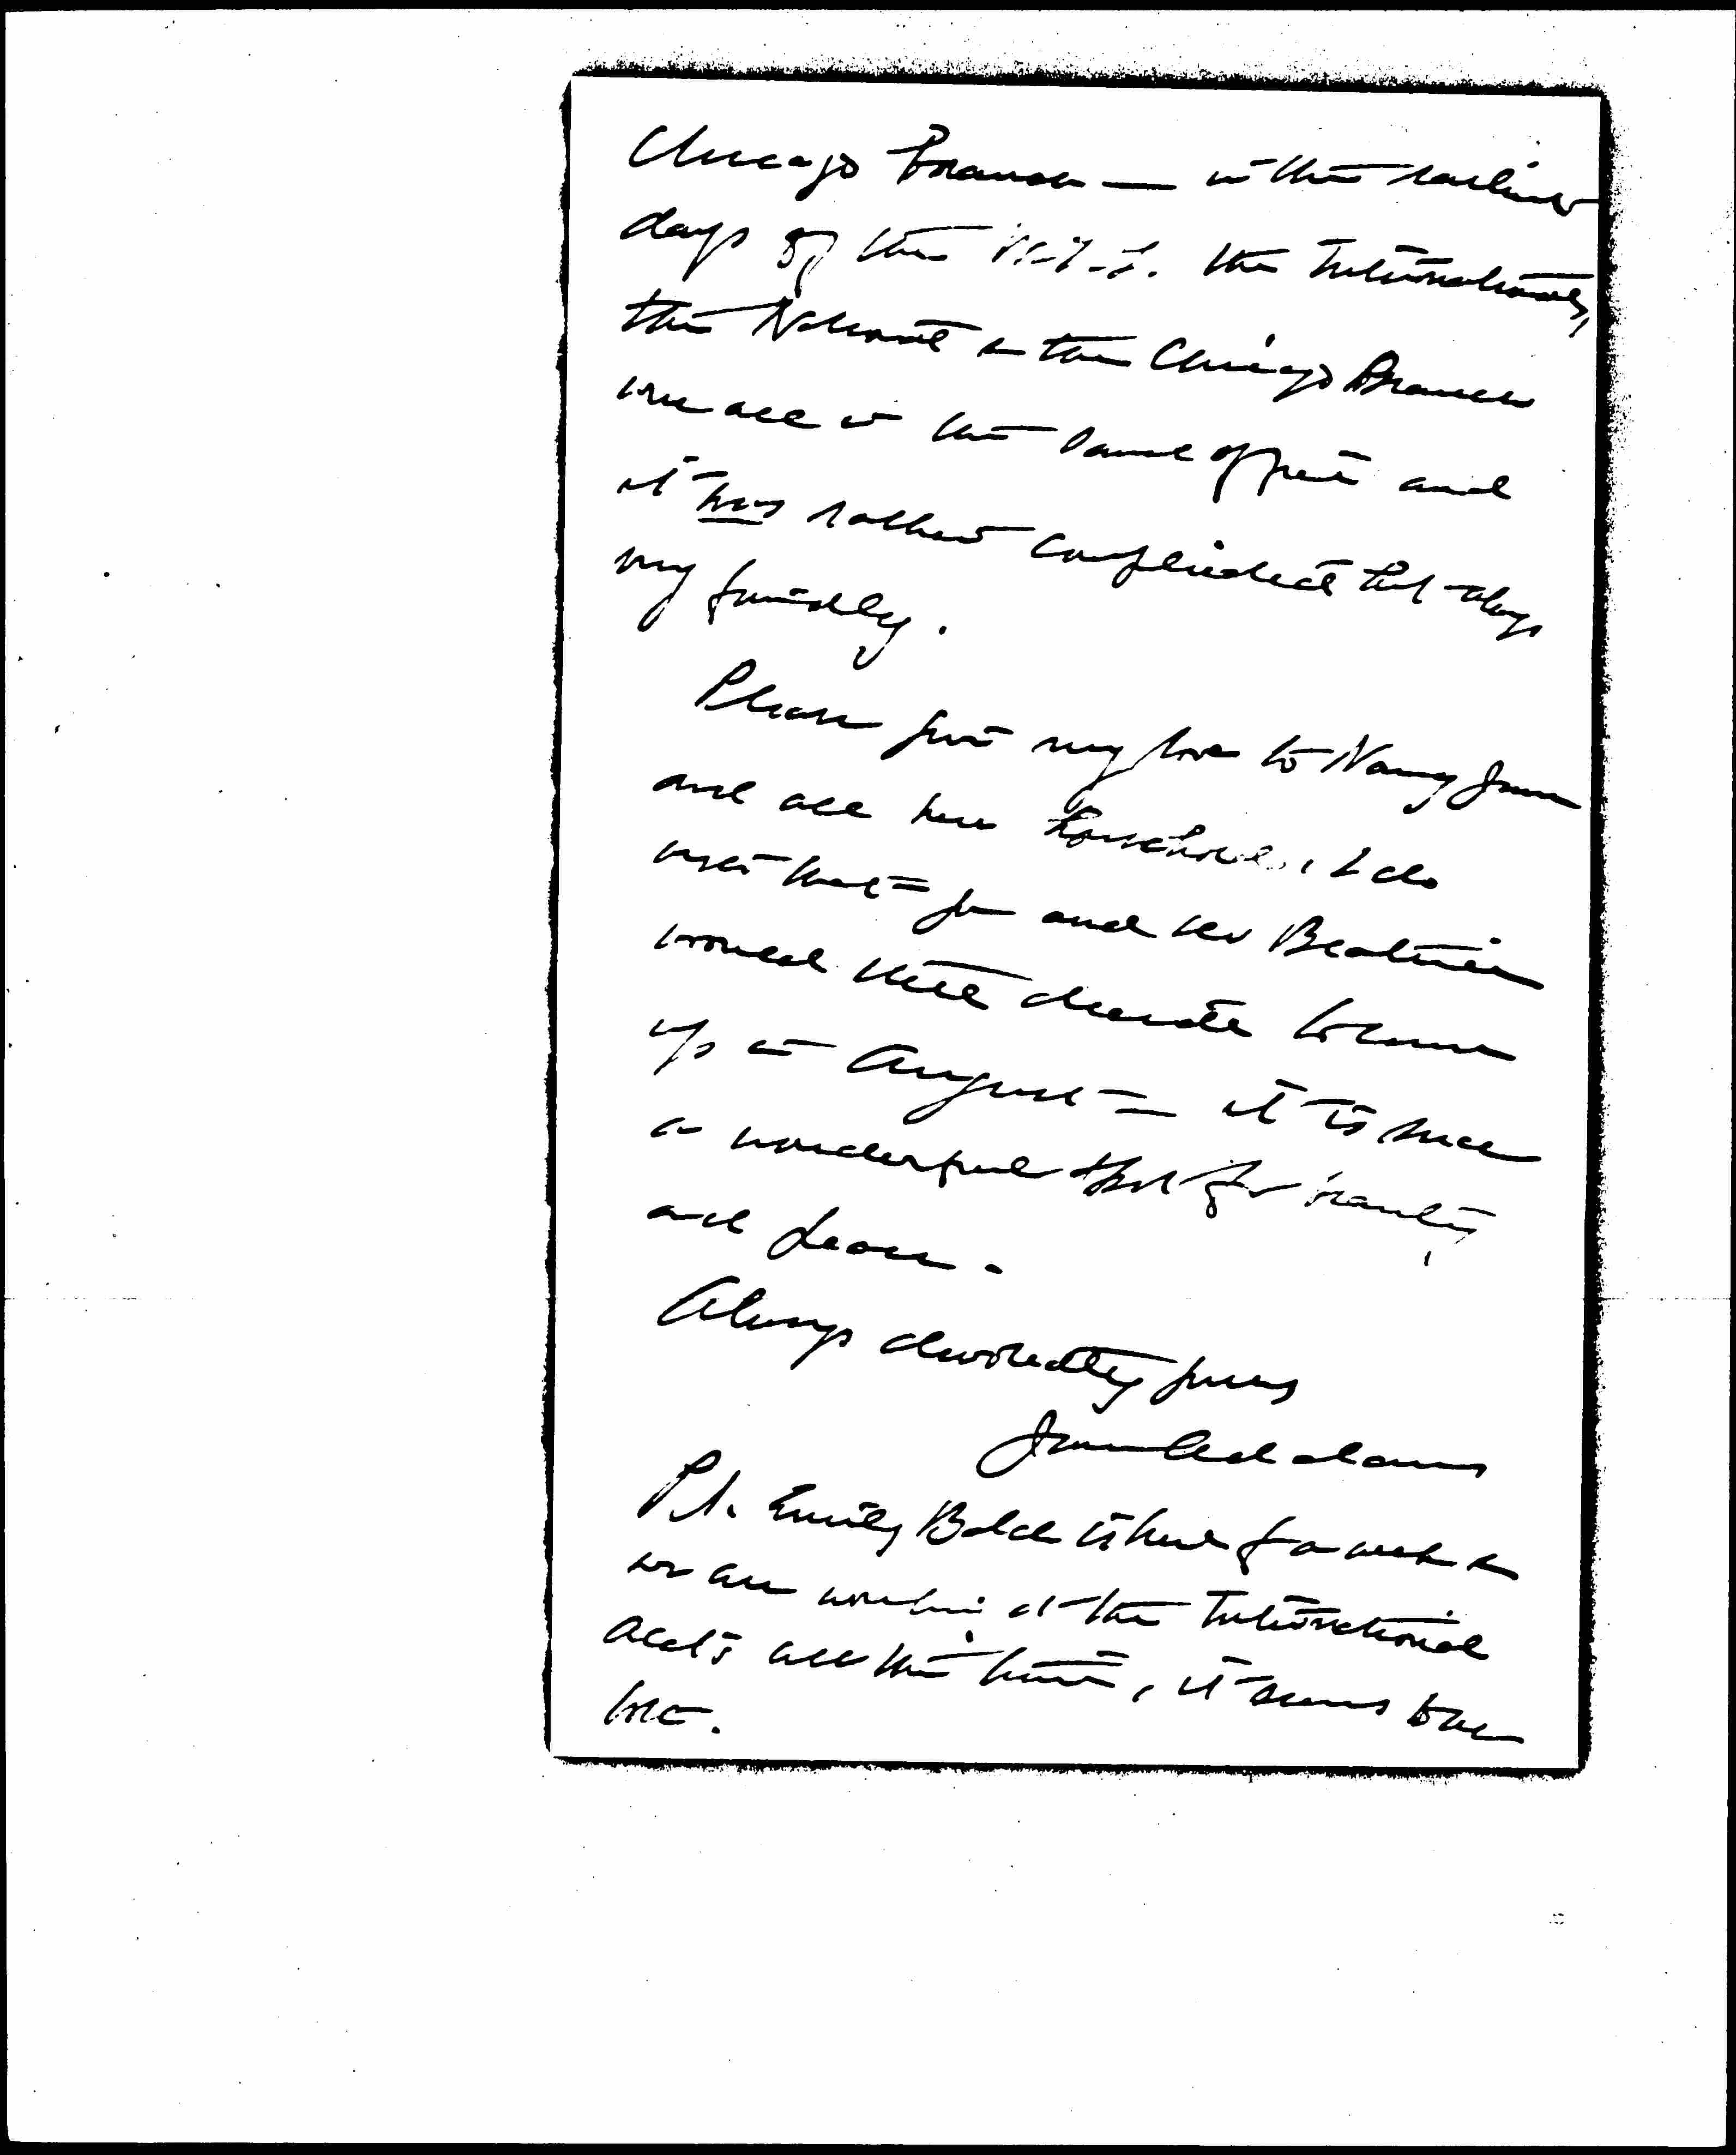 Chicago Branch — in the earlier
days of the W.I.L. the International,
the National & the Chicago Branch
were all in the same office and
it was rather complicated but always
my friendly.
Please give my love to Nancy Jane
and all her household, I do
wish that you and Beatrice
would decide to come
up in August — it is such
a wonderful spot for beauty
and peace.
Always devotedly yours
Jane Addams
P.S. Emily Balch is here for a week &
we are working at the International
all the time, it seems to me